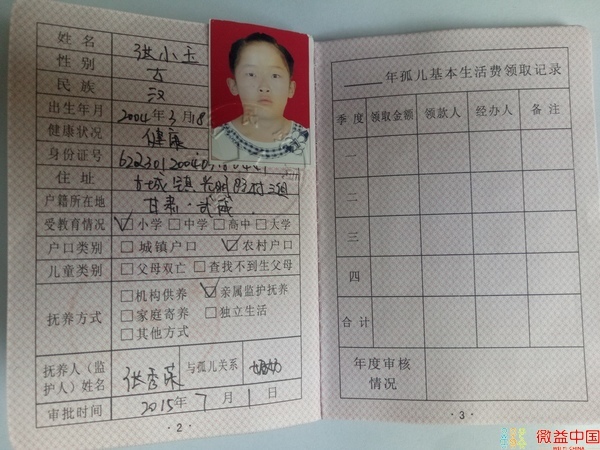 姓名 洪小玉
性别 女
民族 汉
出生年月 2004年3月8
健康状况 健康
身份证号
住址 古城镇光明村三组
户籍所在地 甘肃·武威
受教育情况 ☑小学 □中学 □高中 □大学
户口类别 □城镇户口 ☑农村户口
儿童类别 □父母双亡 □查找不到生父母
抚养方式 □机构供养 ☑亲属监护抚养
□家庭寄养 □独立生活
□其他方式
抚养人（监护人）姓名 张秀萍 与孤儿关系 奶奶
审批时间 2015年7月1日
·2·
年孤儿基本生活费领取记录
季度 领取金额 领款人 经办人 备注
一
二
三
四
合计
年度审核
情况
·3·
微益中国